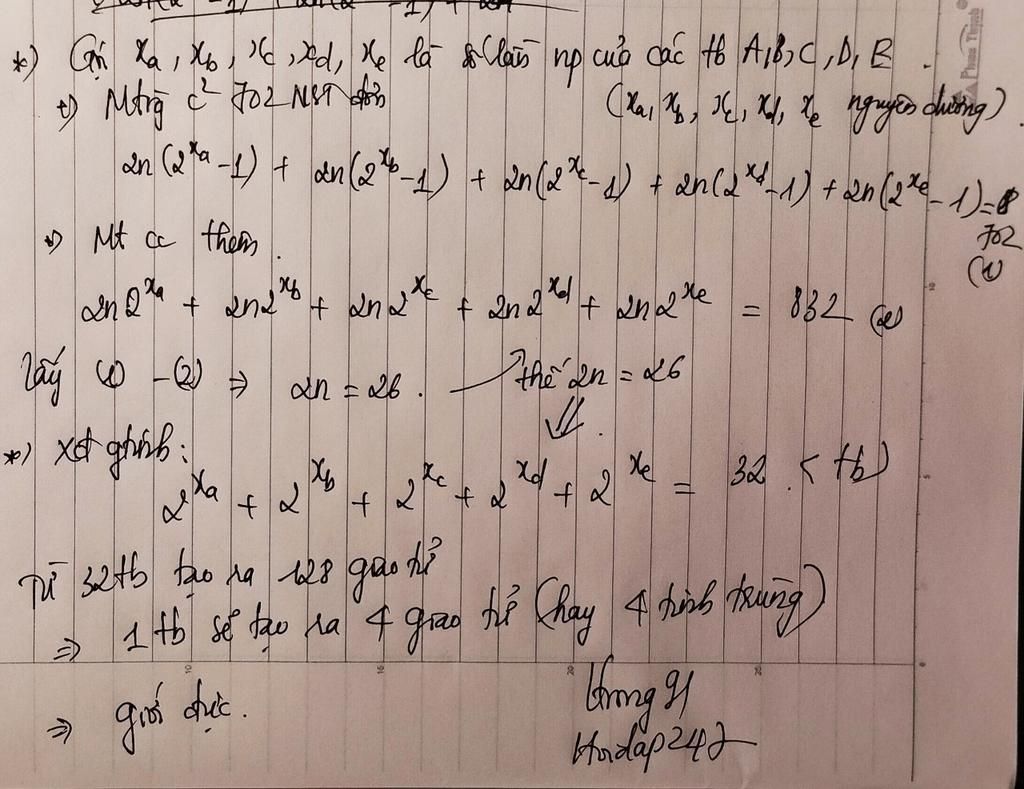 *) Gọi xa, xb, xc, xd, xe là số lần np của các tb A, B, C, D, E.
+) Mtrg c² 702 NST đơn (xa, xb, xc, xd, xe nguyên dương)
2n(2^xa - 1) + 2n(2^xb - 1) + 2n(2^xc - 1) + 2n(2^xd - 1) + 2n(2^xe - 1) = 702 (1)
+) Mt cc thêm.
2n2^xa + 2n2^xb + 2n2^xc + 2n2^xd + 2n2^xe = 832 (2)
lấy (1) - (2) ⇒ 2n = 26. → thế 2n = 26
⇓
*) Xđ gtính:
2^xa + 2^xb + 2^xc + 2^xd + 2^xe = 32. (tb)
Từ 32tb tạo ra 128 giao tử
⇒ 1 tb sẽ tạo ra 4 giao tử (hay 4 tinh trùng)
⇒ giới đực.
Hoidap247
Phong Thịnh
10 15 20 25